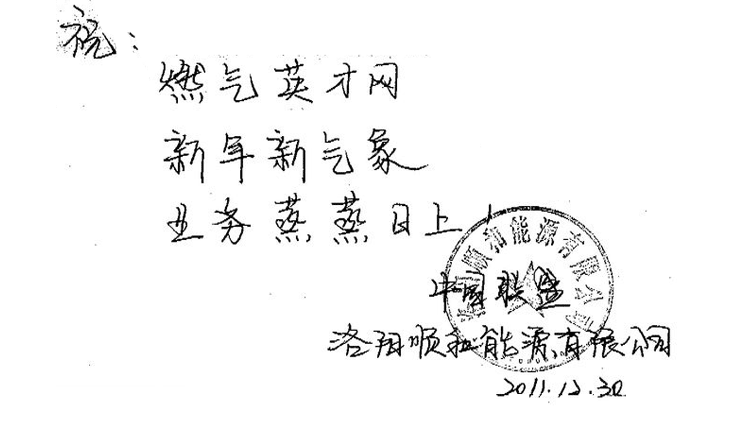 祝：
燃气英才网
新年新气象
业务蒸蒸日上！
中国联盛
洛阳顺和能源有限公司
2011.12.30
洛阳顺和能源有限公司